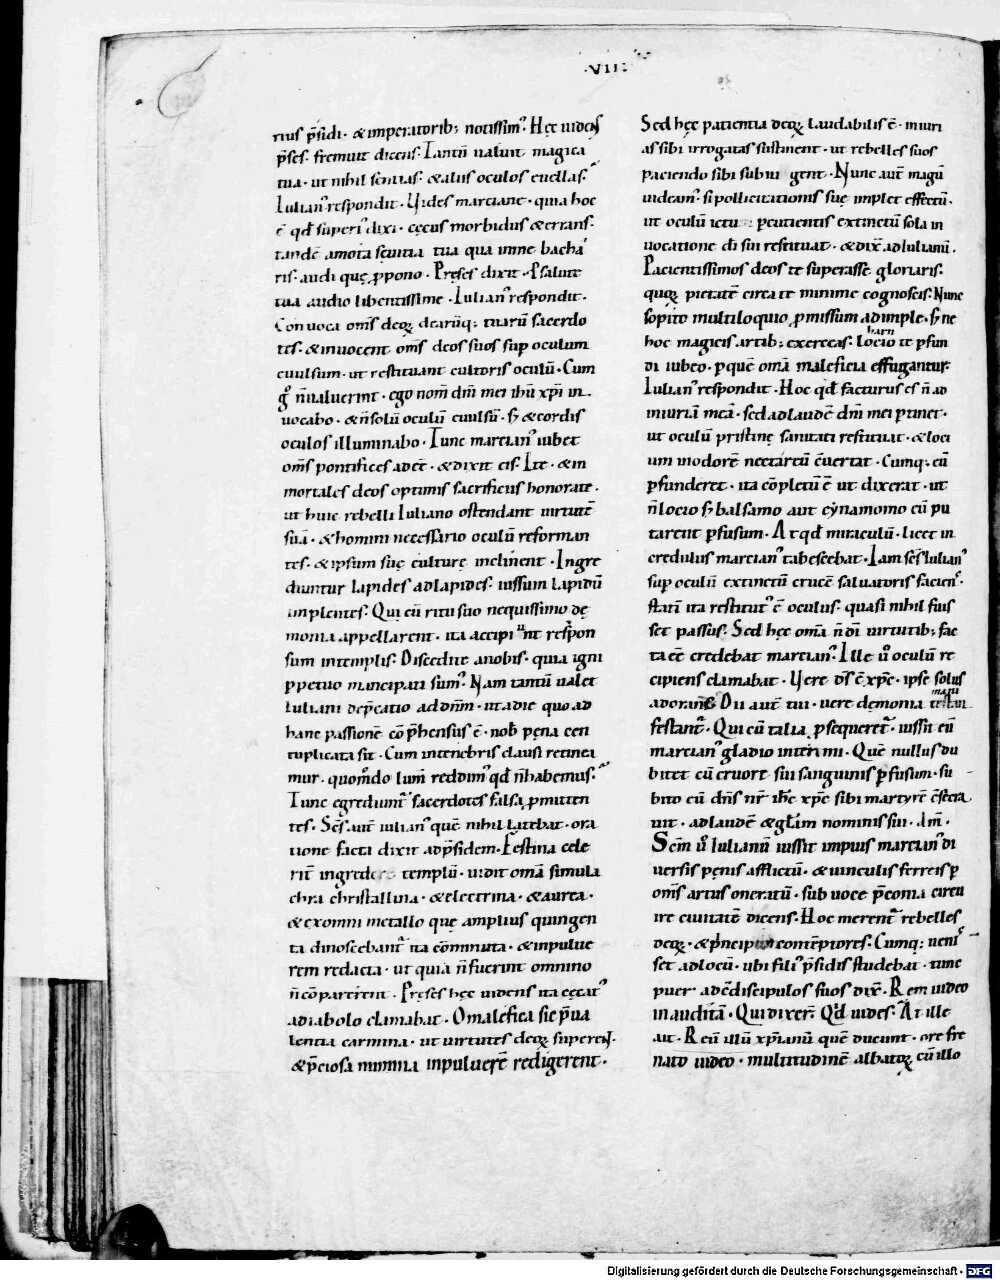 ·VIII·
rius p̄sidi · & imperatorib; notissim᷒ · Hęc uidens
p̄ses · fremuit dicens · Tantū ualuit magica
tua · ut nihil sentias · & alius oculos euellas ·
Iulian᷒ respondit · Vides marciane · quia hoc
ē qđ superi᷒ dixi · cęcus morbidus & errans ·
tandē amota sęuitia tua qua inme bacha
ris · audi quę ꝓpono · Preses dixit · Psalute
tua audio libentissime · Iulian᷒ respondit ·
Conuoca om̄s deoꝝ dearūq; tuarū sacerdo
tes · & inuocent om̄s deos suos sup oculum
euulsum · ut restituant cultoris oculū · Cum
gͦ n̄ ualuerint · ego nom̄ dn̄i mei ihū xp̄i in
uocabo · & n̄ solū oculū euulsū · s; & cordis
oculos illuminabo · Tunc marcian᷒ iubet
om̄s pontifices adeē · & dixit eis · Ite · & in
mortales deos optimis sacrificiis honorate ·
ut huic rebelli Iuliano ostendant uirtutē
suā · & homini necessario oculū reforman
tes · & ipsum suę culturę inclinent · Ingre
diuntur lapides ad lapides · iussum lapidū
implentes · Qui cū ritu suo nequissimo dę
monia appellarent · ita accipiunt respon
sum intemplis · Discedite anobis · quia igni
ꝑpetuo mancipati sum᷒ · Nam tantū ualet
Iuliani dep̄catio ad dn̄m · ut adie quo ad
hanc passionē cōp̄hensus ē · nob̄ pęna cen
tuplicata sit · Cum intenebris clausi retinea
mur · quomͦdo lum̄ reddim᷒ qđ n̄ habemus ·
Tunc egrediunt᷒ sacerdotes falsa ꝓmitten
tes · Sc̄s aut̄ iulian᷒ quē nihil latebat · ora
tione facta dixit ad p̄sidem · Festina cele
rit̄ ingredere templū · uidit om̄a simula
chra christallina · & electrina · & aurea ·
& ex omni metallo quę amplius quingen
ta dinoscebant᷒ ita cōminuta · & inpulue
rem redacta · ut quia n̄ fuerint omnino
n̄ cōparerent · Pręses hęc uidens ita cęcat᷒
adiabolo clamabat · O malefica sic p̄ua
lentia carmina · ut uirtutes deoꝝ superent ·
& p̄ciosa numina inpuluerē redigerent ·
Sed hęc patientia deoꝝ laudabilis ē · iniuri
as sibi irrogatas sustinent · ut rebelles suos
paciendo sibi subiugent · Nunc aut̄ magū
uideam᷒ · si pollicitationis suę implet effectū ·
ut oculū ictu pcutientis extinctū sola in
uocatione di sui restituat · & dix̄ ad Iulianū ·
Pacientissimos deos te superasse gloriaris ·
quoꝝ pietatē circa te minime cognoscis · Nunc
sopito multiloquio ꝓmissum adimple · s; ne
hoc magicis artib; exerceas · locio te pfun
di iubeo · p quē om̄a maleficia effugantur ·
Iulian᷒ respondit · Hoc qđ facturus es n̄ ad
iniuriā meā · sed ad laudē dn̄i mei ptinet ·
ut oculū pristinę sanitati restituat · & loci
um inodorē nectareū cūertat · Cumq; eū
pfunderet · ita cōpletū ē ut dixerat · ut
n̄ locio s; balsamo aut cynamomo eū pu
tarent pfusum · At qđ miraculū · licet in
credulus marcian᷒ tabescebat · Iam sc̄s Iulian᷒
sup oculū extinctū crucē saluatoris facien᷒ ·
statī ita restitut᷒ ē oculus · quasi nihil fuis
set passus · Sed hęc om̄a n̄ di uirtutib; fac
ta eē credebat marcian᷒ · Ille u͛o oculū re
cipiens clamabat · Vere d̄s ē xp̄c · ipse solus
adorand᷒ · Dii aut̄ tui · uere dęmonia
festant᷒ · Qui cū talia psequeret᷒ · iussit eū
marcian᷒ gladio interimi · Quē nullus du
bitet eū cruore sui sanguinis pfusum · su
bito eū dn̄s nr̄ ihc xp̄c sibi martyrē c̄secra
uit · ad laudē & gl̄iam nominis sui · Am̄ ·
Scm̄ u͛o Iulianū iussit impius marcian᷒ di
uersis pęnis afflictū · & uinculis ferreis p
om̄s artus oneratū · sub uoce p̄conia circu
ire ciuitatē dicens · Hoc merent᷒ rebelles
deoꝝ · & p̄ncipum contēptores · Cumq; ueni᷒
set ad locū · ubi fili᷒ p̄sidis studebat · tunc
puer ad c̄discipulos suos dix̄ · Rem uideo
inauditā · Qui dixer̄ · Qđ uides · At ille
ait · Reū illū xp̄ianū quē ducunt · ore fre
nato uideo · multitudinē albatoꝝ cū illo
Digitalisierung gefördert durch die Deutsche Forschungsgemeinschaft - DFG